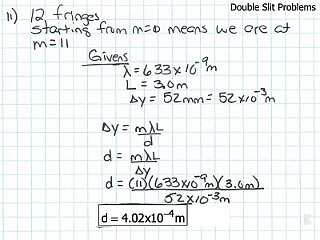 Double Slit Problems
11) 12 fringes
starting from m=0 means we are at
m=11
Givens
λ = 633x10⁻⁹m
L = 3.0m
Δy = 52mm = 52x10⁻³m
Δy = mλL/d
d = mλL/Δy
d = (11)(633x10⁻⁹m)(3.0m)/52x10⁻³m
d = 4.02x10⁻⁴m